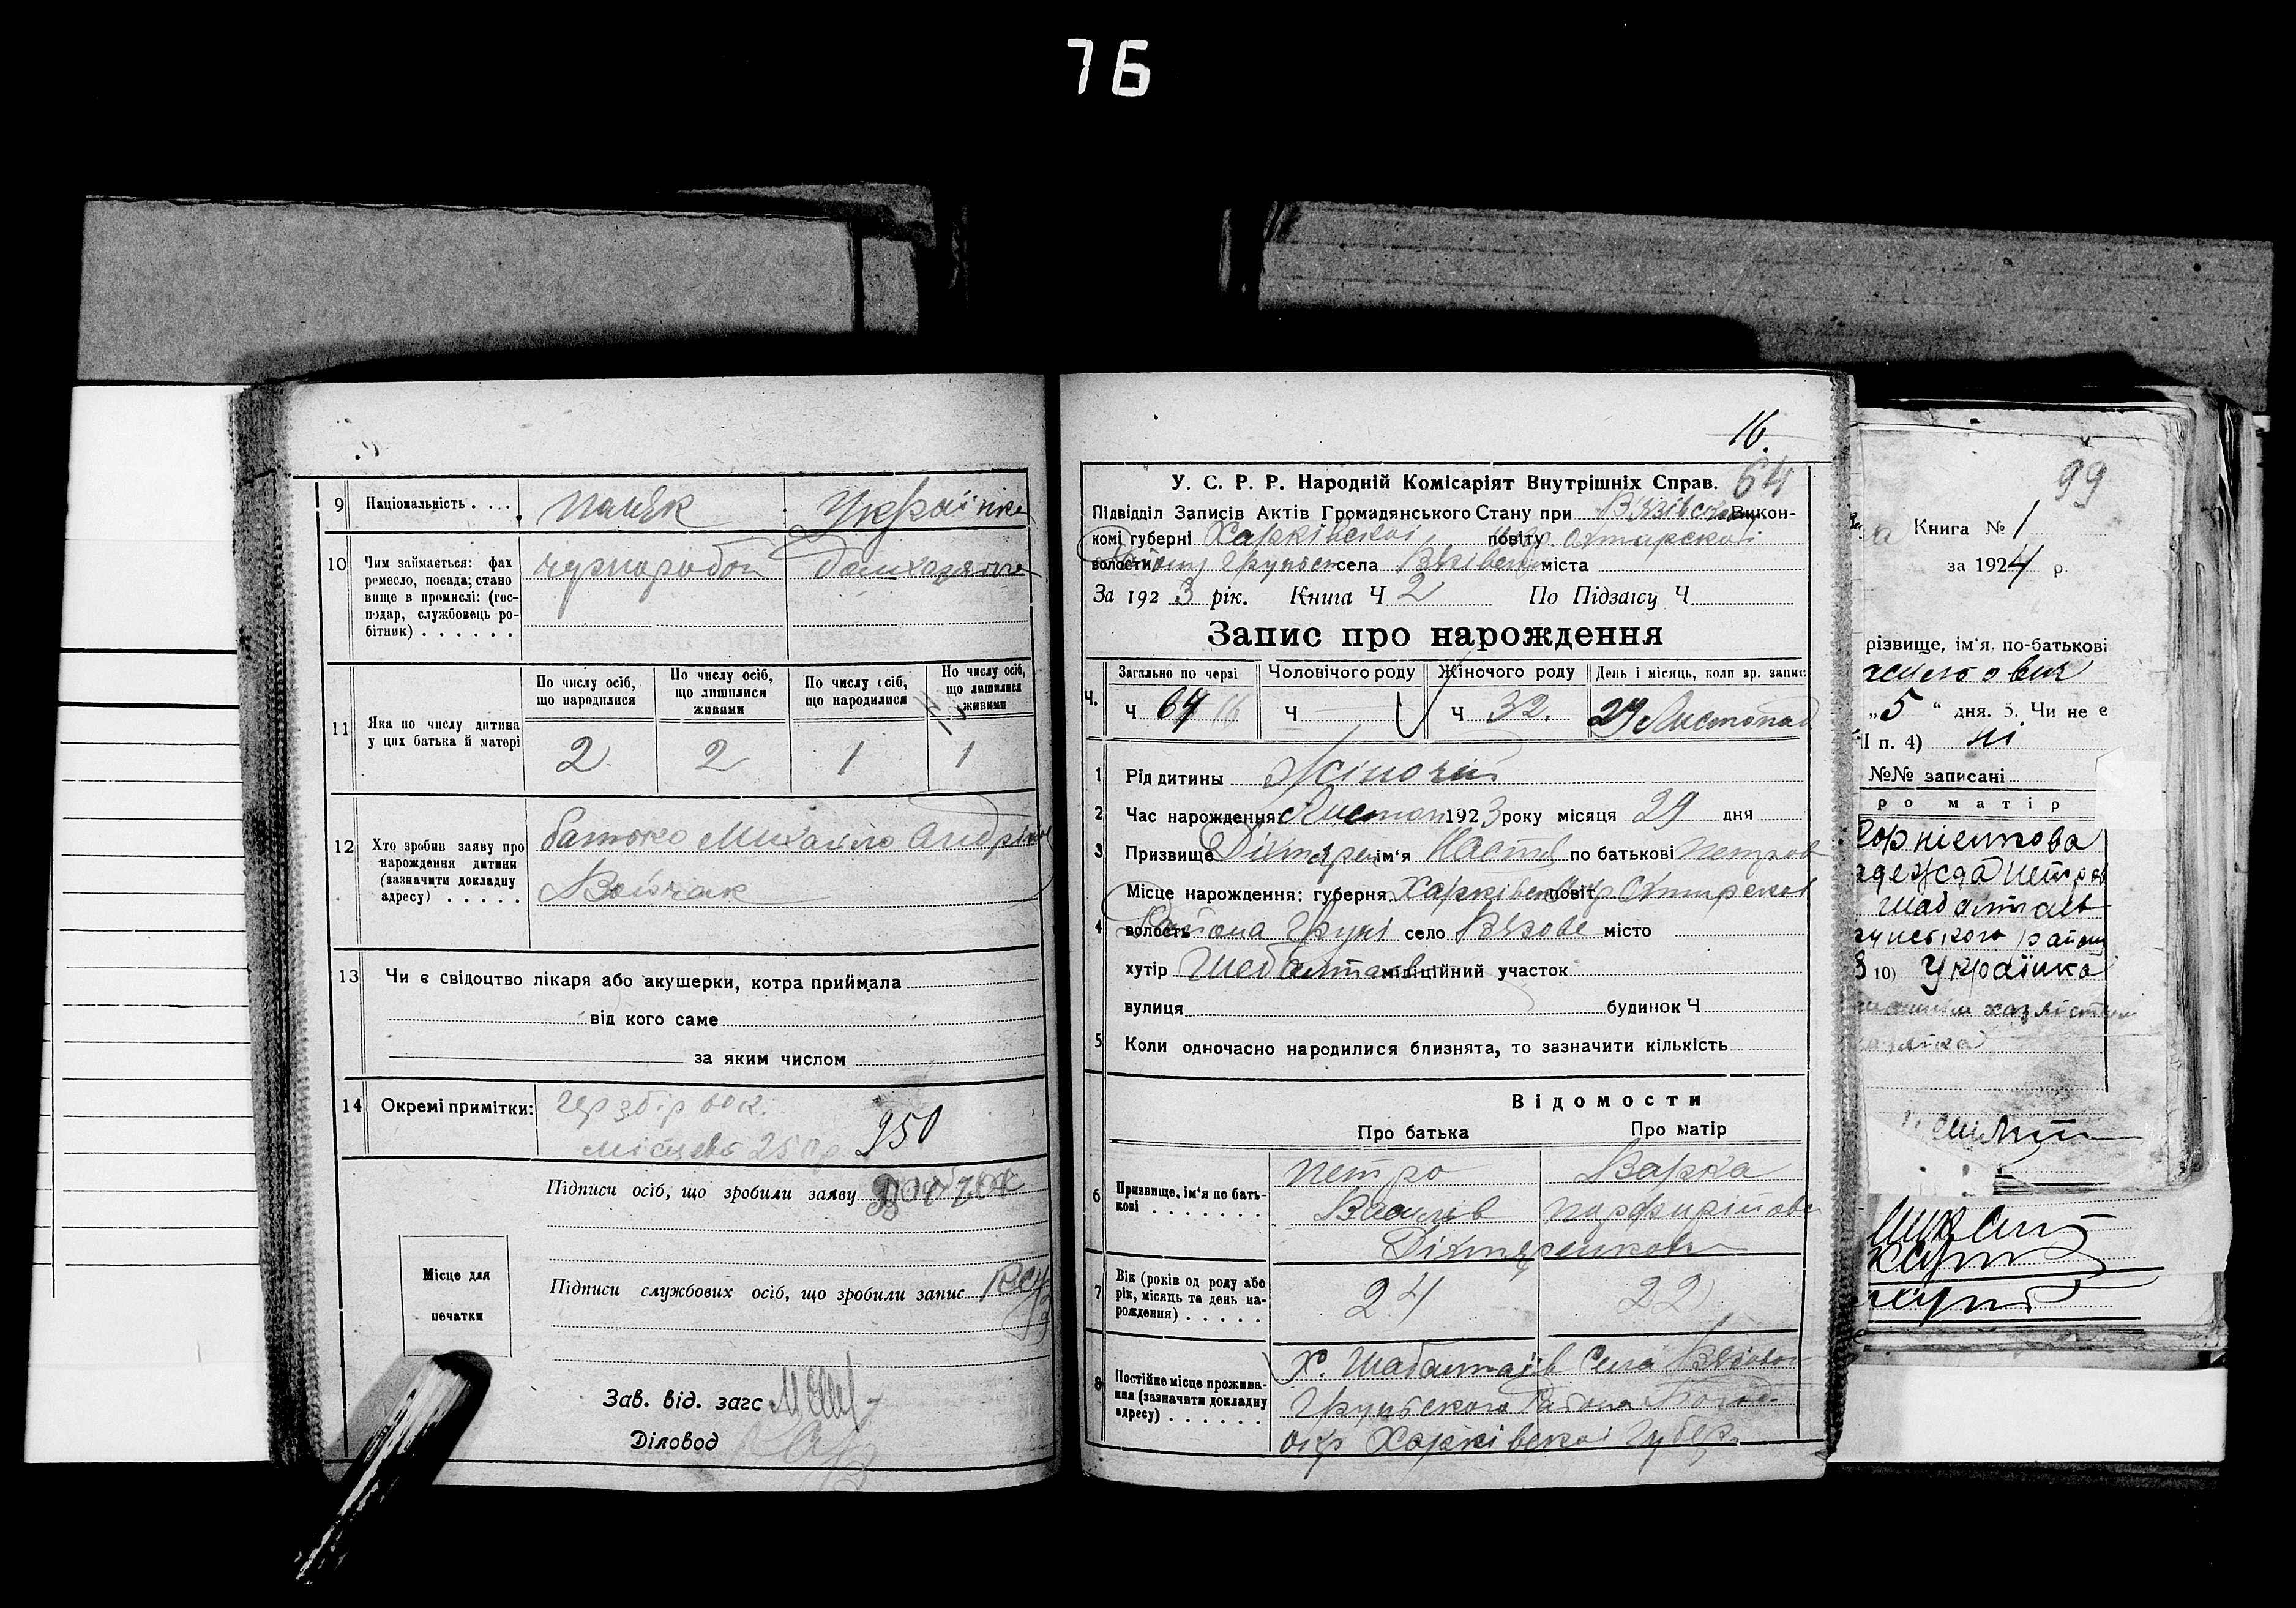 76
9 Національність . . . . Поляк Українка
10 Чим займається: фах
ремесло, посада; стано
вище в промислі: (гос-
подар, службовець ро-
бітник) . . . . . .
чорнороб домхазяйка
11 Яка по числу дитина
у цих батька й матері
По числу осіб,
що народилися
По числу осіб,
що лишилися
живими
По числу осіб,
що народилися
По числу осіб,
що лишилися
живими
2 2 1 1
12 Хто зробив заяву про
нарождення дитини
(зазначити докладну
адресу) . . . . .
батько Михайло Андрієв
Войчак
13 Чи є свідоцтво лікаря або акушерки, котра приймала
від кого саме
за яким числом
14 Окремі примітки:
Гербзбір 60 к.
місцевь 25 0 р. 950
Підписи осіб, що зробили заяву Войчак
Підписи службових осіб, що зробили запис
Місце для
печатки
Зав. від. загс
Діловод
16.
64
У. С. Р. Р. Народній Комісаріят Внутрішніх Справ.
Підвідділ Записів Актів Громадянського Стану при Вязівском Викон-
комі губерні Харківскої повіту Охтирскої
волости Груньск села Вязівськ міста
За 1923 рік. Книга Ч 2 По Підзагсу Ч
Запис про нарождення
Ч.
Загально по черзі Чоловічого роду Жіночого роду День і місяць, коли зр. запис
Ч 64 16 Ч Ч 32. 29 Листопад
1 Рід дитини Жіночий
2 Час нарождення Листоп 1923 року місяця 29 дня
3 Призвище Діхтярен ім'я Настя по батькові Петров
4 Місце нарождення: губерня Харківськ повіт Охтирской
волость Района Груні село Вязове місто
хутір Шебалтаєв міліційний участок
вулиця будинок Ч
5 Коли одночасно народилися близнята, то зазначити кількість
Відомости
Про батька Про матір
6 Призвище, ім'я по бать-
кові . . . . . . .
Петро Варка
Васильв Порфирітовн
Діхтяренкови
7 Вік (років од роду або
рік, місяць та день на-
рождення) . . . . .
24 22
8 Постійне місце прожива-
ння (зазначити докладну
адресу) . . . . . .
Х. Шабалтаїв Села Вязовог
Груньского Района Богод.
окр Харківскої Губер.
99
Книга № 1
за 1924 р.
різвище, ім'я, по-батькові
„5“ дня. 5. Чи не є
II п. 4) ні
№№ записані
ро матір
Корнієнкова
адежда Петров
Шабалтаєв
рунського району
10) Українка